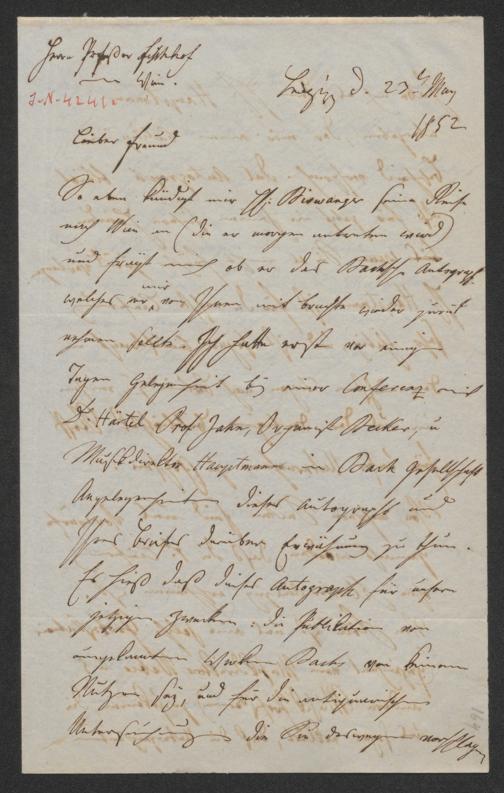 Herrn Professor Fischhof
in Wien.
I.N. 42410
Leipzig d. 23t May
1852
Lieber Freund
So eben kündigt mir H. Biswanger seine Reise
nach Wien an (die er morgen antreten wird)
und frägt mich ob er das Bachsche Autograph
welches er mir von Ihnen mit brachte wieder zurück
nehmen sollte. Ich hatte erst vor einigen
Tagen Gelegenheit bei einer Conferenz mit
Dr Härtel Prof Jahn, Organist Becker, u
Musikdirektor Hauptmann in Bach Gesellschaft
Angelegenheiten dieses Autographs und
Ihres Briefes darüber Erwähnung zu thun.
Es hieß daß dieses Autograph für unsere
jetzigen Zwecke: die Publikation von
ungekannten Werken Bachs von keinem
Nutzen sey, und für die antiquarischen
Untersuchungen die Sie deswegen vorschlagen